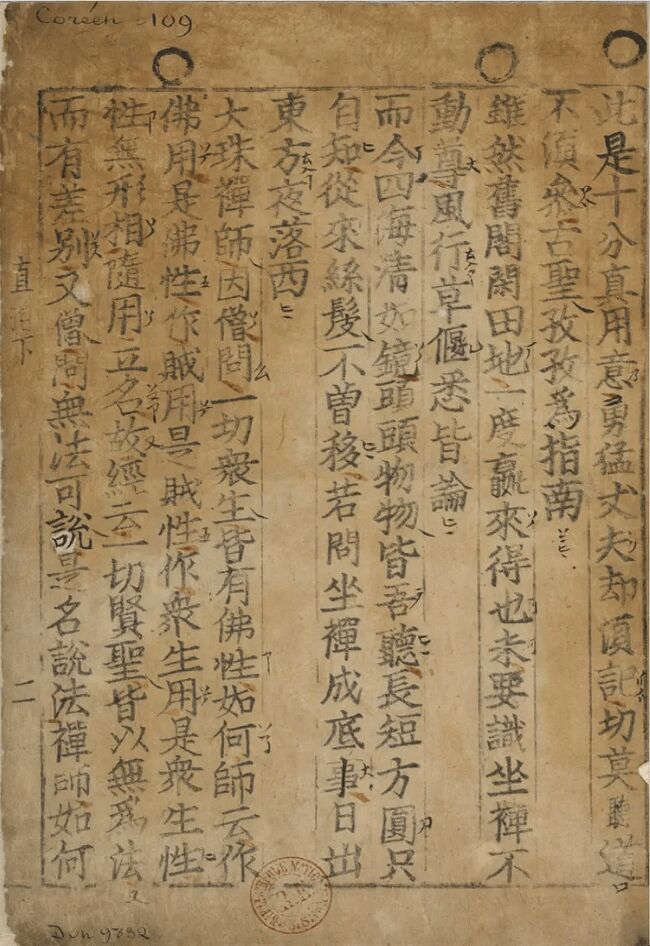 Coréen 109
此是十分真用意勇猛丈夫却須記切莫聽道
不須叅古聖孜孜爲指南
雖然舊閣閑田地一度贏來得也未要識坐禪不
動尊風行草偃悉皆論
而今四海清如鏡頭頭物物皆吾聽長短方圓只
自知從來絲髮不曾移若問坐禪成底事日出
東方夜落西
大珠禪師因僧問一切衆生皆有佛性如何師云作
佛用是佛性作賊用是賊性作衆生用是衆生性
性無形相隨用立名故經云一切賢聖皆以無爲法
而有差別又僧問無法可說是名說法禪師如何
直指下 二
Don 9832